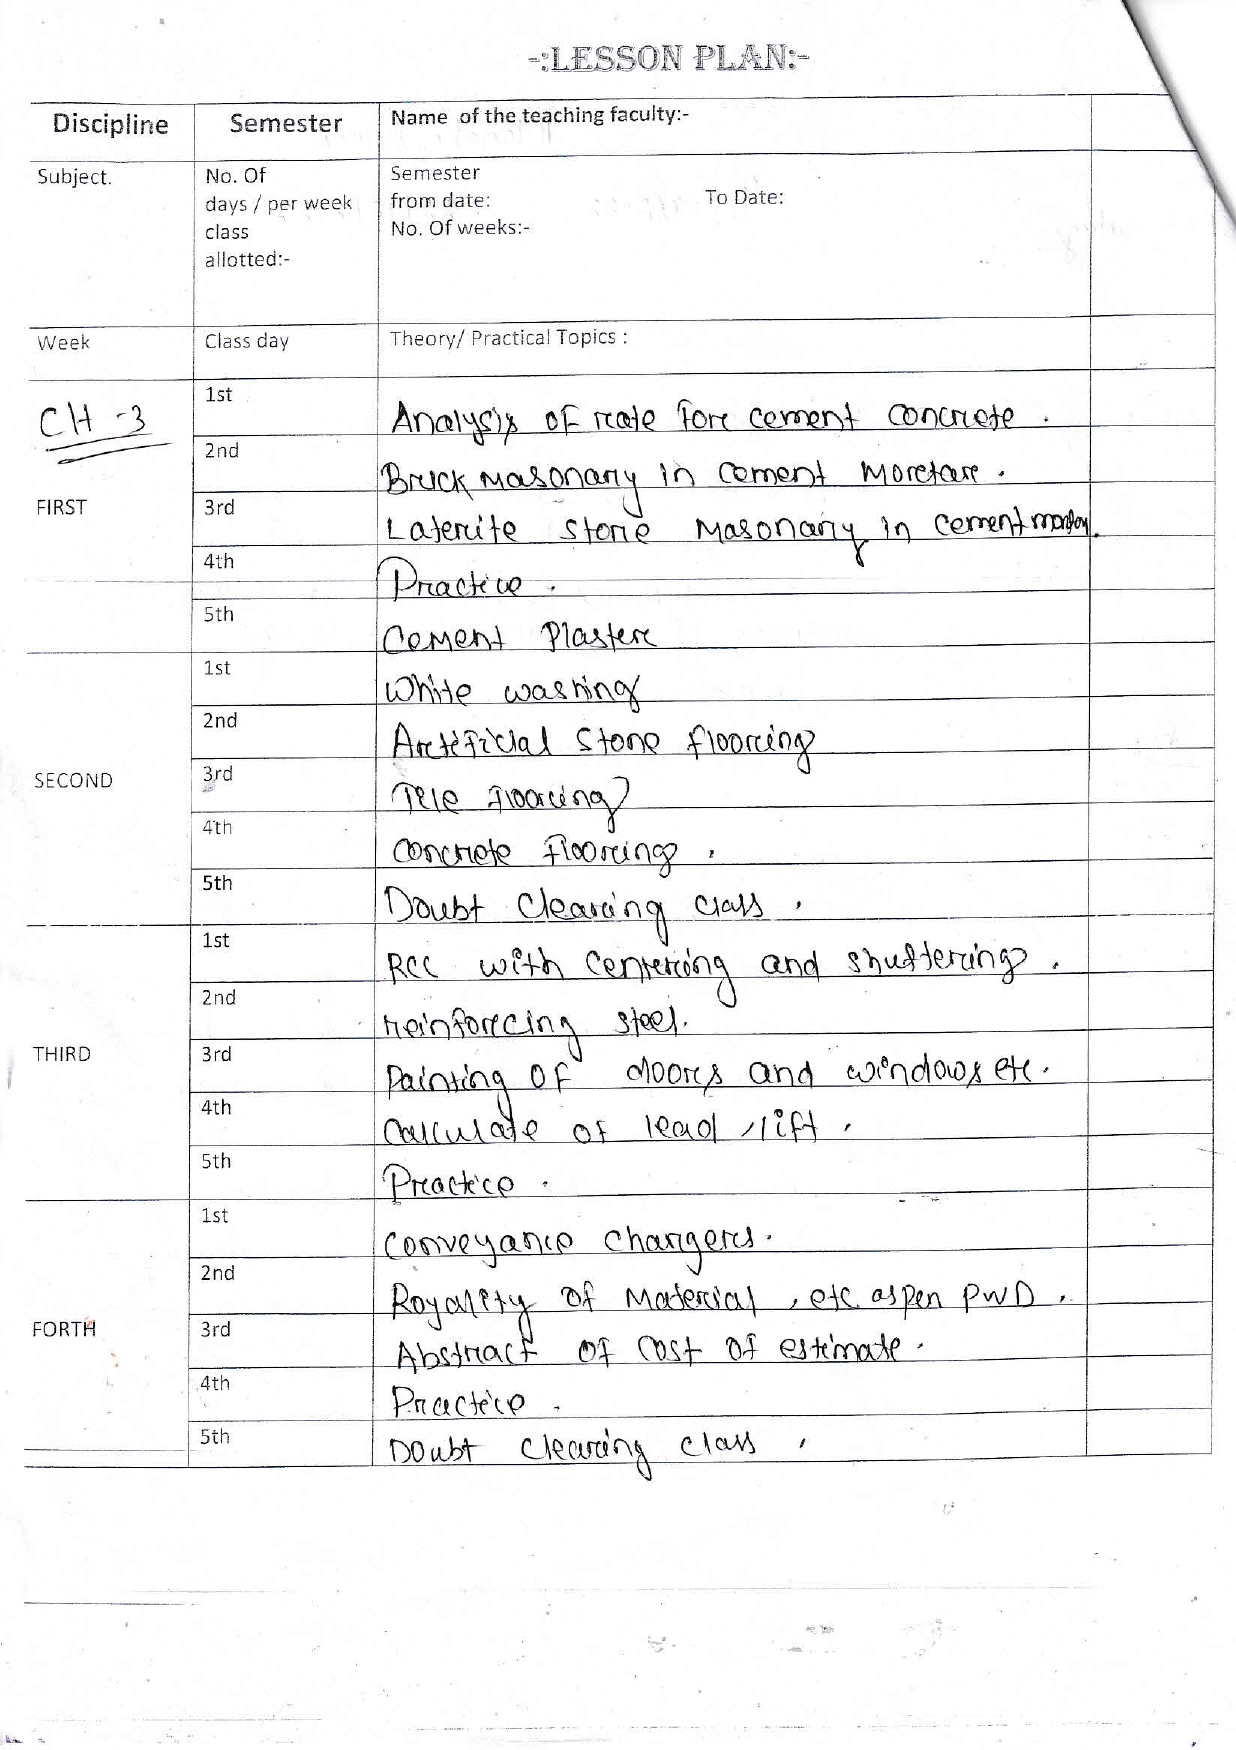 -:LESSON PLAN:-
Discipline
Semester
Name of the teaching faculty:-
Subject.
No. Of
days / per week
class
allotted:-
Semester
from date:
To Date:
No. Of weeks:-
Week
Class day
Theory/ Practical Topics :
CH -3
FIRST
1st
Analysis of rate for cement concrete .
2nd
Brick Masonary in Cement Moretare .
3rd
Laterite stone Masonary in cement
4th
Practice .
5th
Cement Plaster
SECOND
1st
White washing
2nd
Artificial Stone flooring
3rd
Tile flooring
4th
Concrete flooring .
5th
Doubt Clearing class .
THIRD
1st
RCC with centering and shuttering .
2nd
reinforcing steel.
3rd
Painting of doors and windows etc .
4th
Calculate of lead /lift .
5th
Practice .
FORTH
1st
Conveyance chargers .
2nd
Royality of Material , etc as per PWD .
3rd
Abstract of cost of estimate .
4th
Practice .
5th
Doubt clearing class .